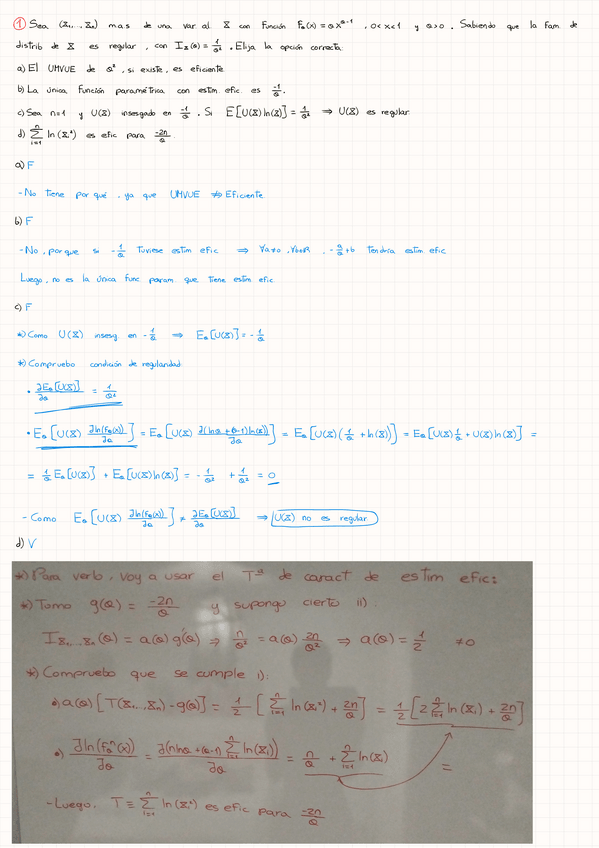 ① Sea (X₁,...,Xₙ) m a s de una var. al. X con Función f_θ(x) = θ x^{θ-1} , 0<x<1 y θ>0 . Sabiendo que la fam. de
distrib de X es regular , con I_X(θ) = 1/θ² . Elija la opción correcta:
a) El UMVUE de θ² , si existe, es eficiente.
b) La única función paramétrica con estim. efic. es -1/θ .
c) Sea n=1 y U(X) insesgado en -1/θ . Si E[U(X)ln(X)] = 1/θ² ⇒ U(X) es regular
d) Σ_{i=1}^{n} ln(X_i²) es efic para -2n/θ .
a) F
- No tiene por qué , ya que UMVUE ⇏ Eficiente
b) F
- No, porque si -1/θ tuviese estim efic ⇒ ∀a≠0, ∀b∈ℝ , -a/θ + b tendría estim efic
Luego, no es la única func param que tiene estim efic
c) F
*) Como U(X) insesg en -1/θ ⇒ E_θ[U(X)] = -1/θ
*) Compruebo condición de regularidad:
• ∂E_θ[U(X)]/∂θ = 1/θ²
• E_θ[U(X) ∂ln(f_θ(x))/∂θ] = E_θ[U(X) ∂(lnθ+(θ-1)ln(X))/∂θ] = E_θ[U(X)(1/θ + ln(X))] = E_θ[U(X)1/θ + U(X)ln(X)] =
= 1/θ E_θ[U(X)] + E_θ[U(X)ln(X)] = -1/θ² + 1/θ² = 0
- Como E_θ[U(X) ∂ln(f_θ(x))/∂θ] ≠ ∂E_θ[U(X)]/∂θ ⇒ U(X) no es regular
d) V
*) Para verlo, voy a usar el Tª de caract de estim efic:
*) Tomo g(θ) = -2n/θ y supongo cierto ii).
I_{X₁,...,Xₙ}(θ) = a(θ) g'(θ) ⇒ n/θ² = a(θ) 2n/θ² ⇒ a(θ) = 1/2 ≠0
*) Compruebo que se cumple i):
•) a(θ)[T(X₁,...,Xₙ) - g(θ)] = 1/2 [Σ_{i=1}^{n} ln(X_i²) + 2n/θ] = 1/2 [2Σ_{i=1}^{n} ln(X_i) + 2n/θ]
•) ∂ln(f_θⁿ(x))/∂θ = ∂(n lnθ + (θ-1) Σ_{i=1}^{n} ln(X_i))/∂θ = n/θ + Σ_{i=1}^{n} ln(X_i) =
- Luego, T ≡ Σ_{i=1}^{n} ln(X_i²) es efic para -2n/θ